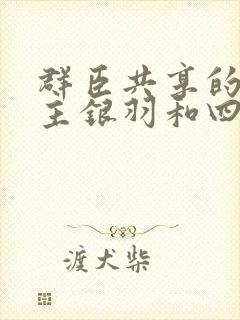 群臣共享的
主银羽和四
渡犬柴